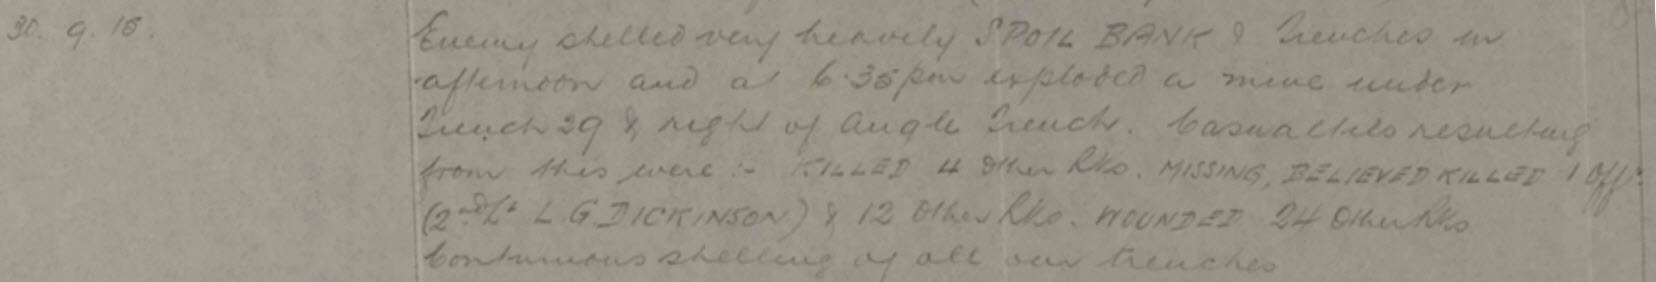 30. 9. 15. Enemy shelled very heavily SPOIL BANK & Trenches in
afternoon and at 6.35pm exploded a mine under
Trench 29 & right of Angle Trench. Casualties resulting
from this were :- KILLED 4 Other Rks. MISSING, BELIEVED KILLED 1 Offr.
(2nd Lt L.G. DICKINSON) & 12 Other Rks. WOUNDED 24 Other Rks
Continuous shelling of all our trenches